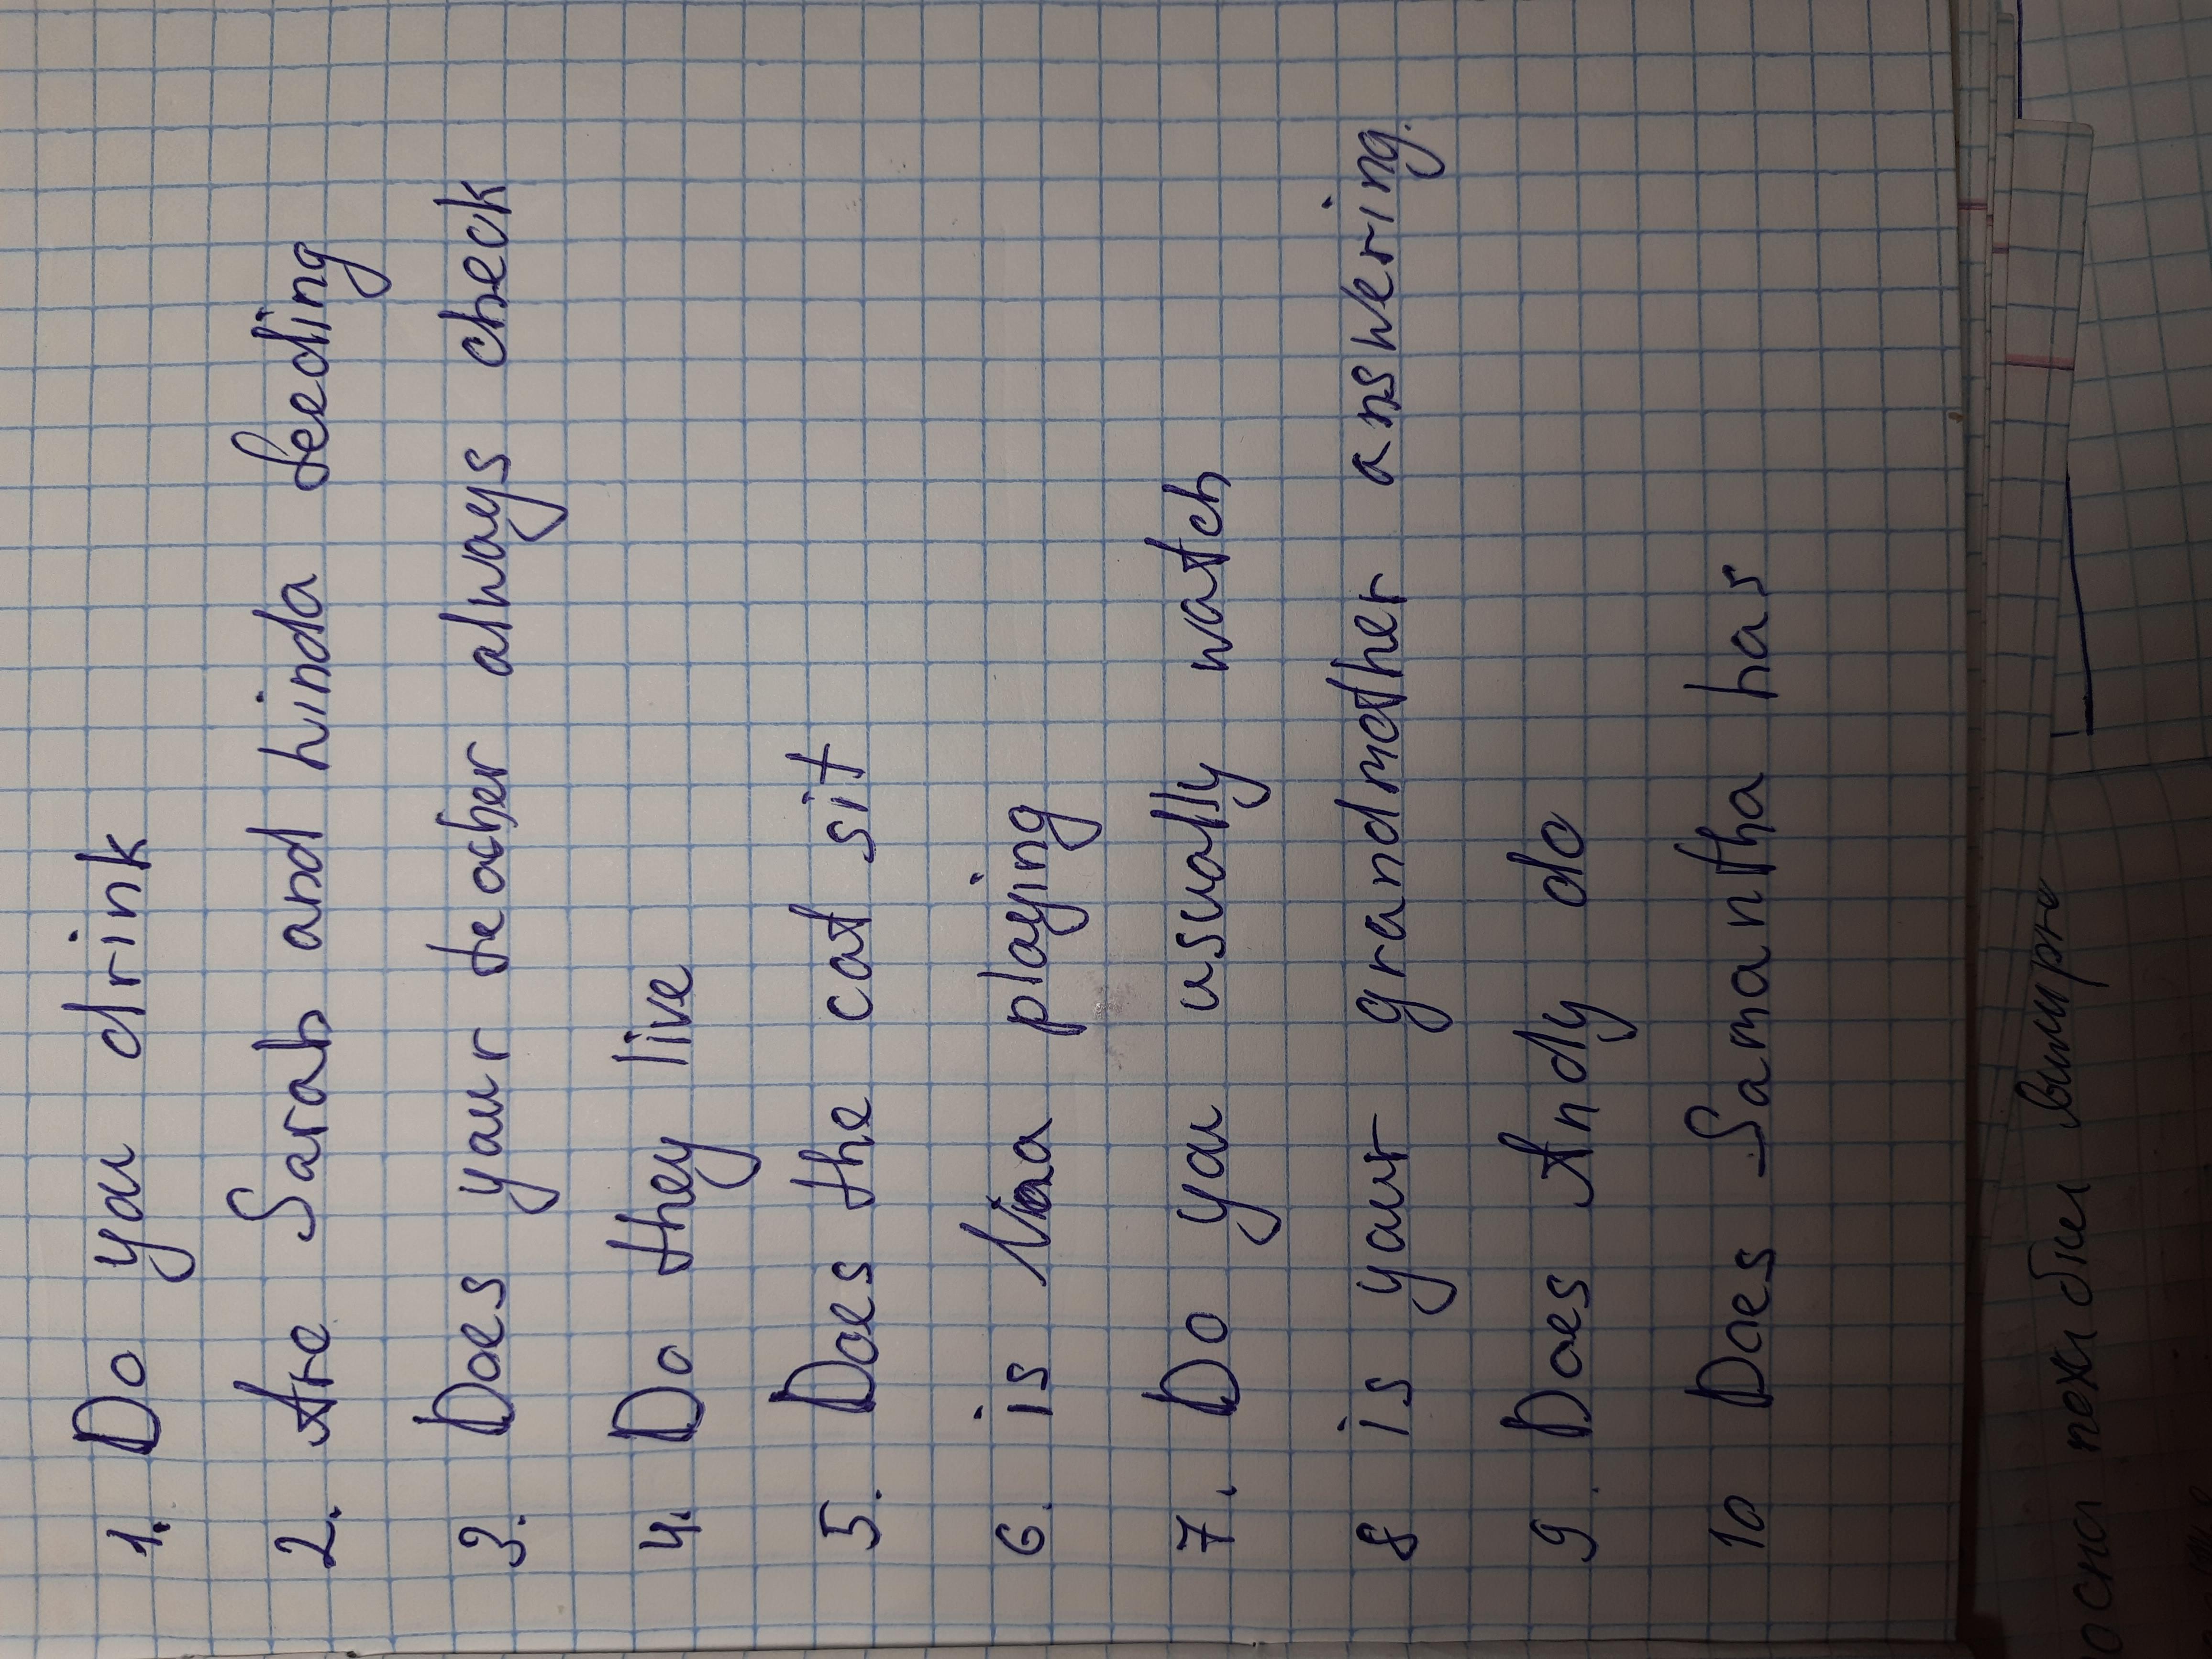 1. Do you drink
2. Are Sarah and Linda feeding
3. Does your teacher always check
4. Do they live
5. Does the cat sit
6. is playing
7. Do you usually watch
8 is your grandmother answering.
9. Does Andy do
10 Does Samantha has